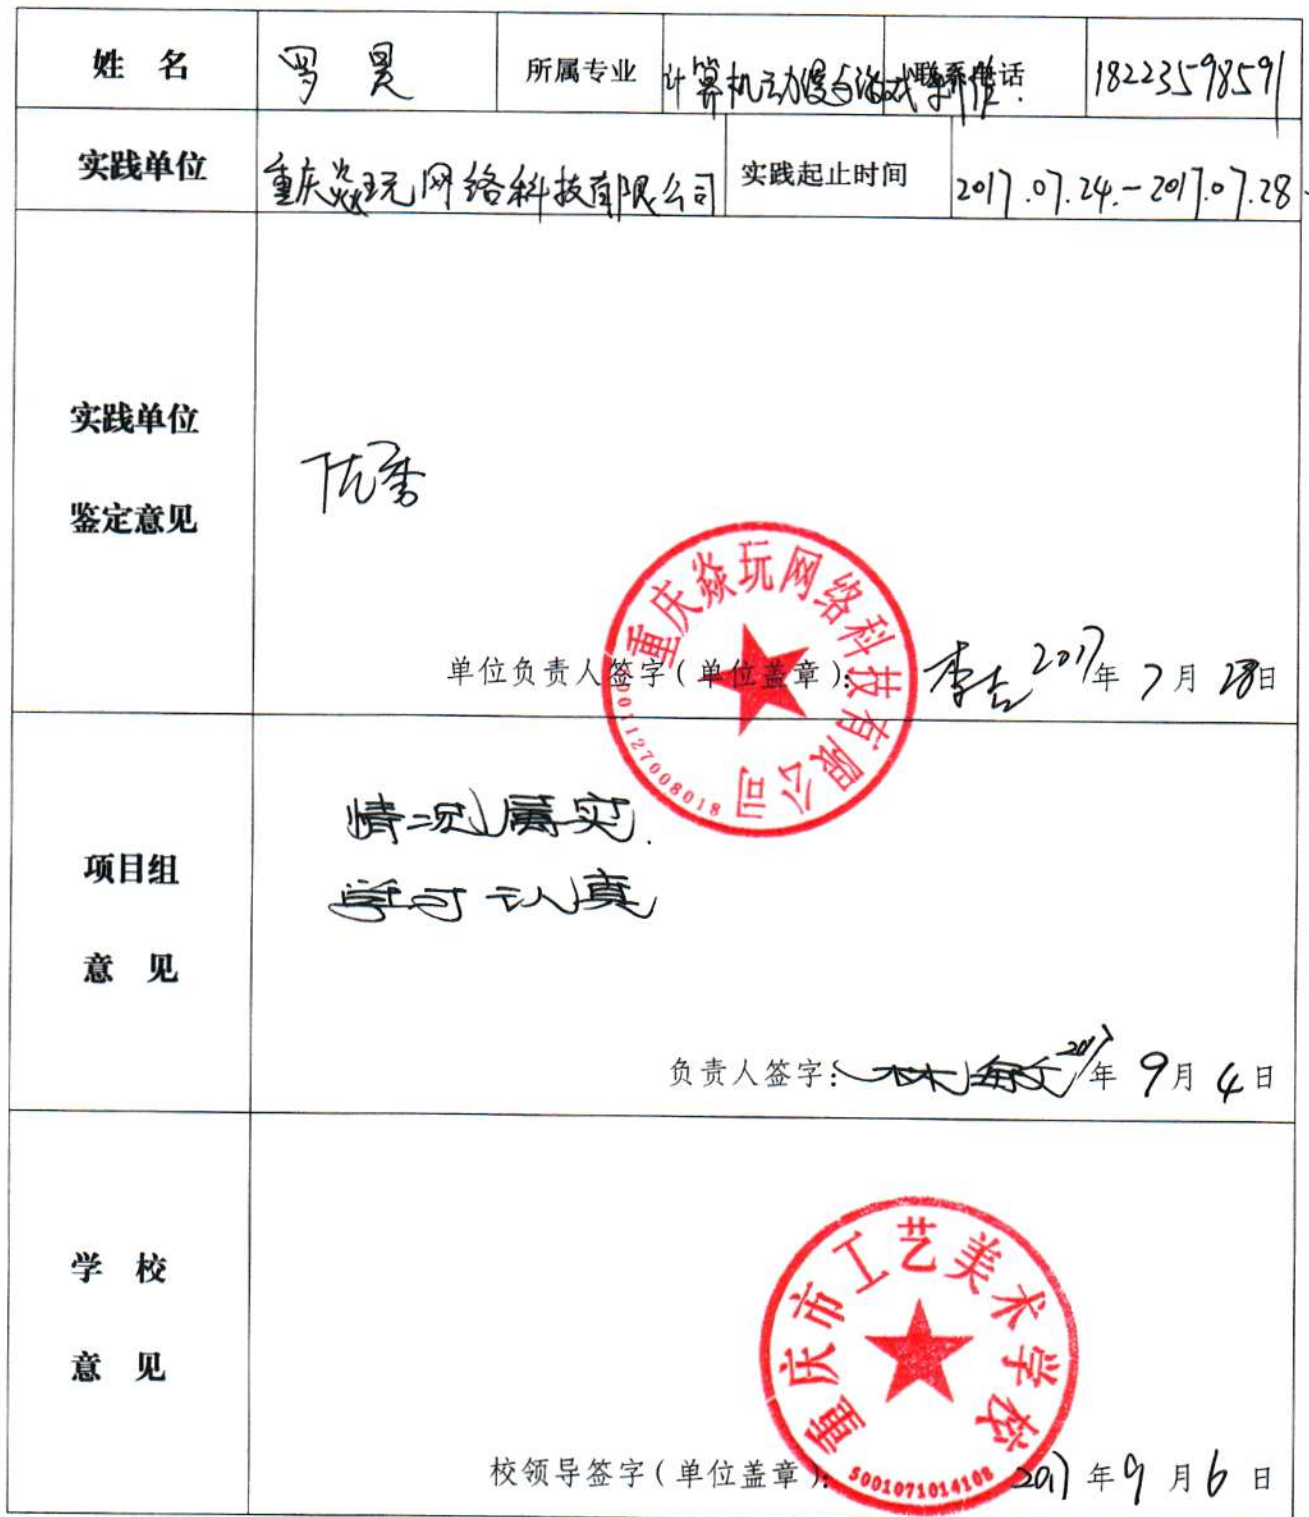 姓 名 罗昊 所属专业 计算机动漫与游戏制作. 联系电话 18223598591
实践单位 重庆焱玩网络科技有限公司 实践起止时间 2017.07.24.-2017.07.28.
实践单位
鉴定意见
优秀
重庆焱玩网络科技有限公司
单位负责人签字(单位盖章): 2017年7月28日
项目组
意 见
情况属实.
学习认真
负责人签字: 2017年9月4日
学 校
意 见
重庆市工艺美术学校
5001071014108
校领导签字(单位盖章): 2017年9月6日